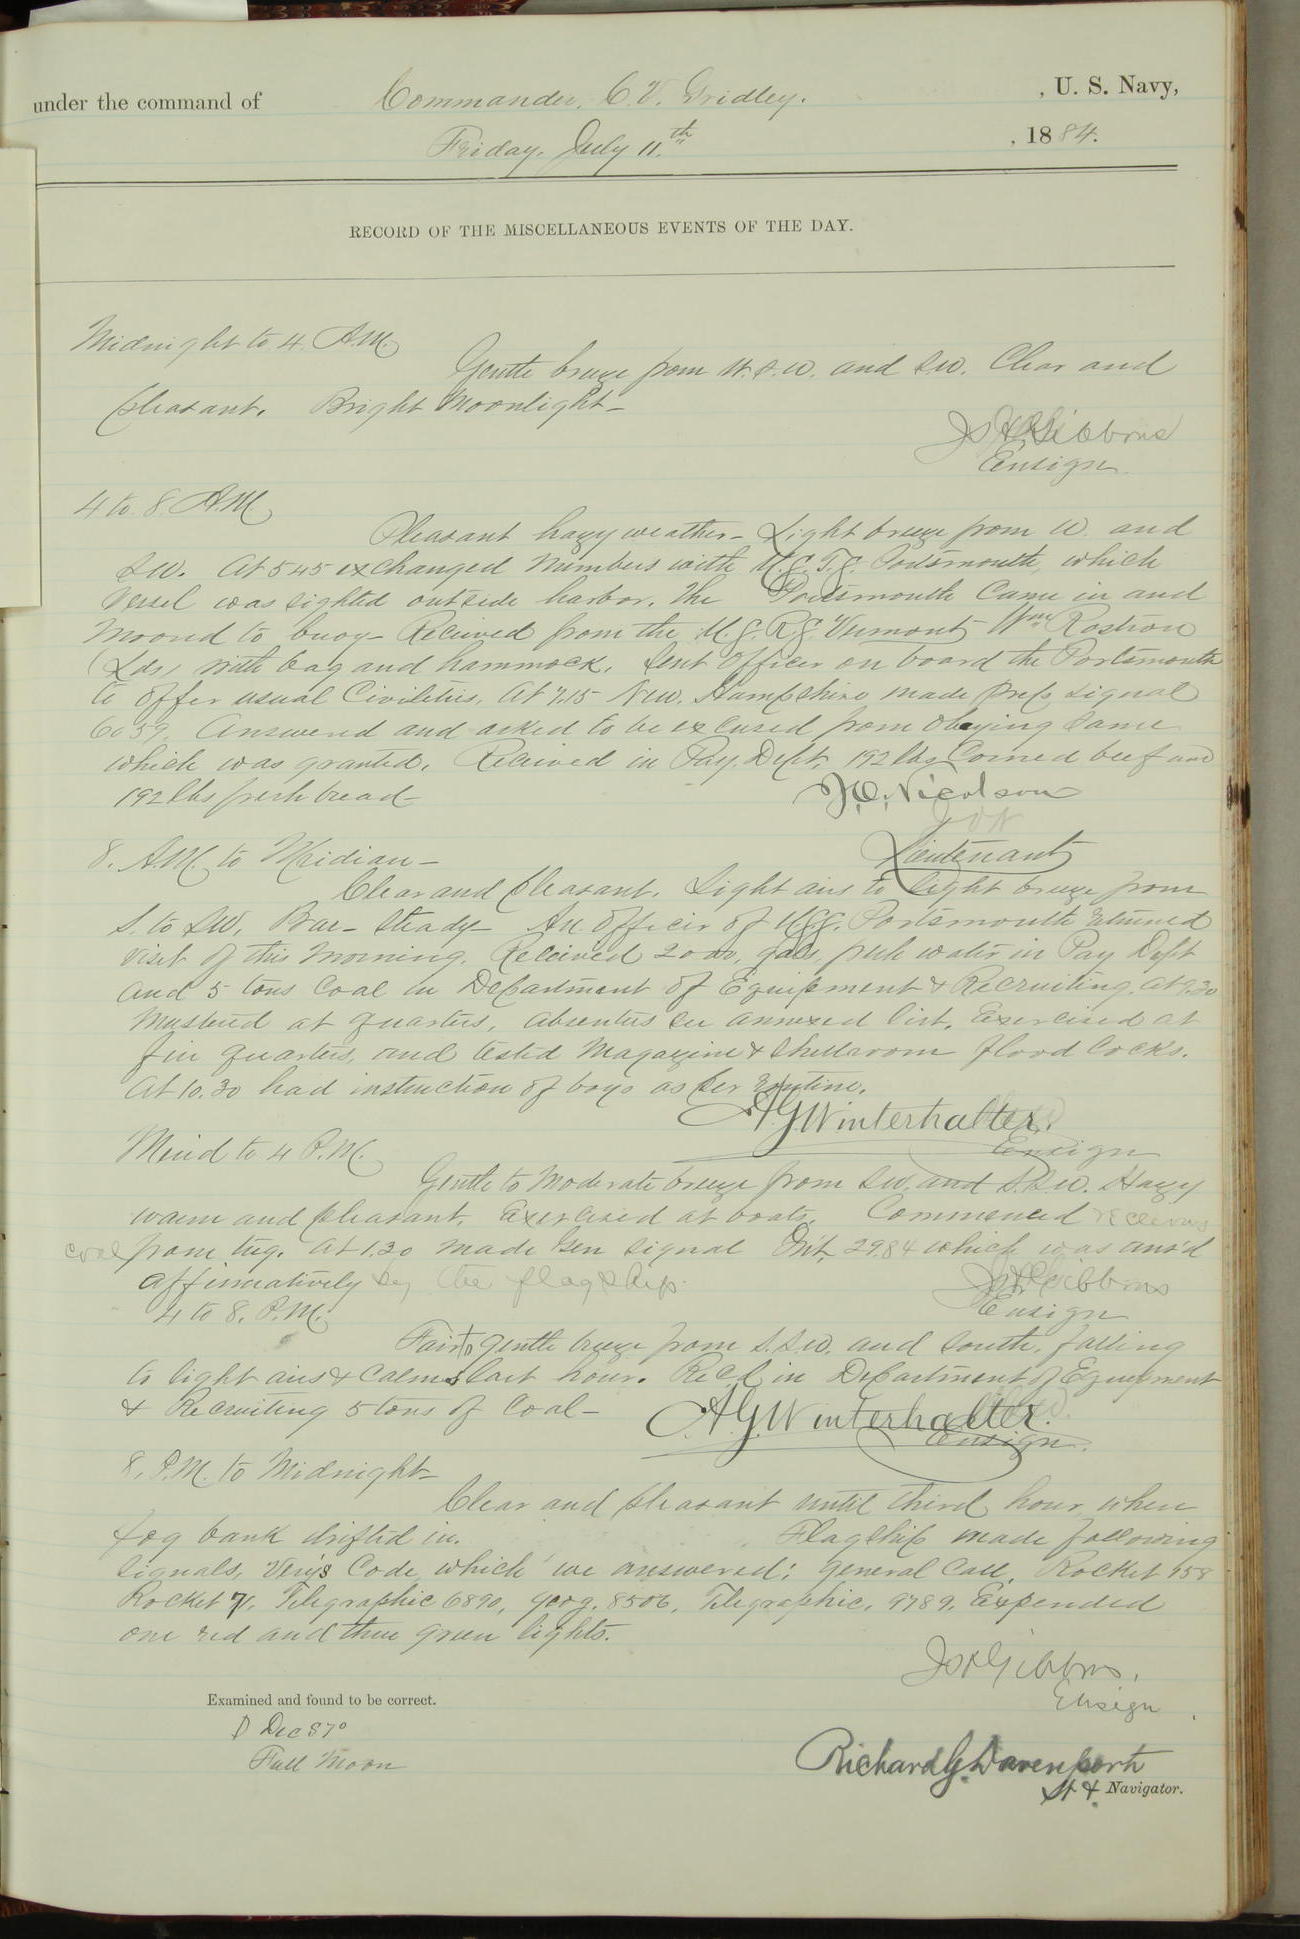 under the command of Commander, C. V. Gridley. , U. S. Navy,
Friday, July 11th , 1884.
RECORD OF THE MISCELLANEOUS EVENTS OF THE DAY.
Midnight to 4 A.M.
Gentle breeze from W.S.W. and S.W. Clear and
pleasant. Bright Moonlight—
Gibbons
Ensign
4 to 8 A.M.
Pleasant hazy weather— Light breeze from W. and
SW. At 545 exchanged numbers with U.S.T.S. Portsmouth, which
Vessel was sighted outside harbor. The Portsmouth Came in and
Moored to buoy— Received from the U.S.R.S. Vermont, Wm Rostron
Lds, with bag and hammock. Sent officer on board the Portsmouth
to offer usual Civilities. At 7.15 New Hampshire made prep signal
6059. Answered and asked to be excused from obeying same
which was granted. Received in Pay. Dept. 192 lbs Corned beef and
192 lbs fresh bread—
J.O. Nicolson
Lieutenant
8. A.M. to Meridian—
Clear and pleasant. Light airs to light breeze from
S. to SW. Bar— Steady— An officer of U.S.S. Portsmouth returned
visit of this Morning. Received 2000, gals, fresh water in Pay Dept
and 5 tons Coal in Department of Equipment & Recruiting. At 9.30
Mustered at quarters, absentees see annexed list. Exercised at
fire quarters, and tested Magazine & Shellroom flood Cocks.
At 10.30 had instruction of boys as per routine.
A.G. Winterhalter.
Ensign
Merid to 4 P.M.
Gentle to Moderate breeze from SW. and S.S.W. Hazy
warm and pleasant. Exercised at boats. Commenced receiving
coal from tug. At 1.30 made Gen Signal Int. 2984 which was ans'd
affirmatively by the flagship.
Gibbons
Ensign
4 to 8. P.M.
Fair to gentle breeze from S.S.W. and South, falling
to light airs & Calms last hour. Rec'd in Department of Equipment
& Recruiting 5 tons of Coal—
A.G. Winterhalter.
Ensign.
8. P.M. to Midnight—
Clear and pleasant until third hour, when
fog bank drifted in. Flagship made following
signals, Very's Code, which we answered: General Call, Rocket 958
Rocket 7, Telegraphic 6890, geog. 8506, Telegraphic, 9789. Expended
one red and three green lights.
Gibbons,
Ensign
Examined and found to be correct.
Dec 87°
Full Moon
Richard G. Davenport
Lt & Navigator.